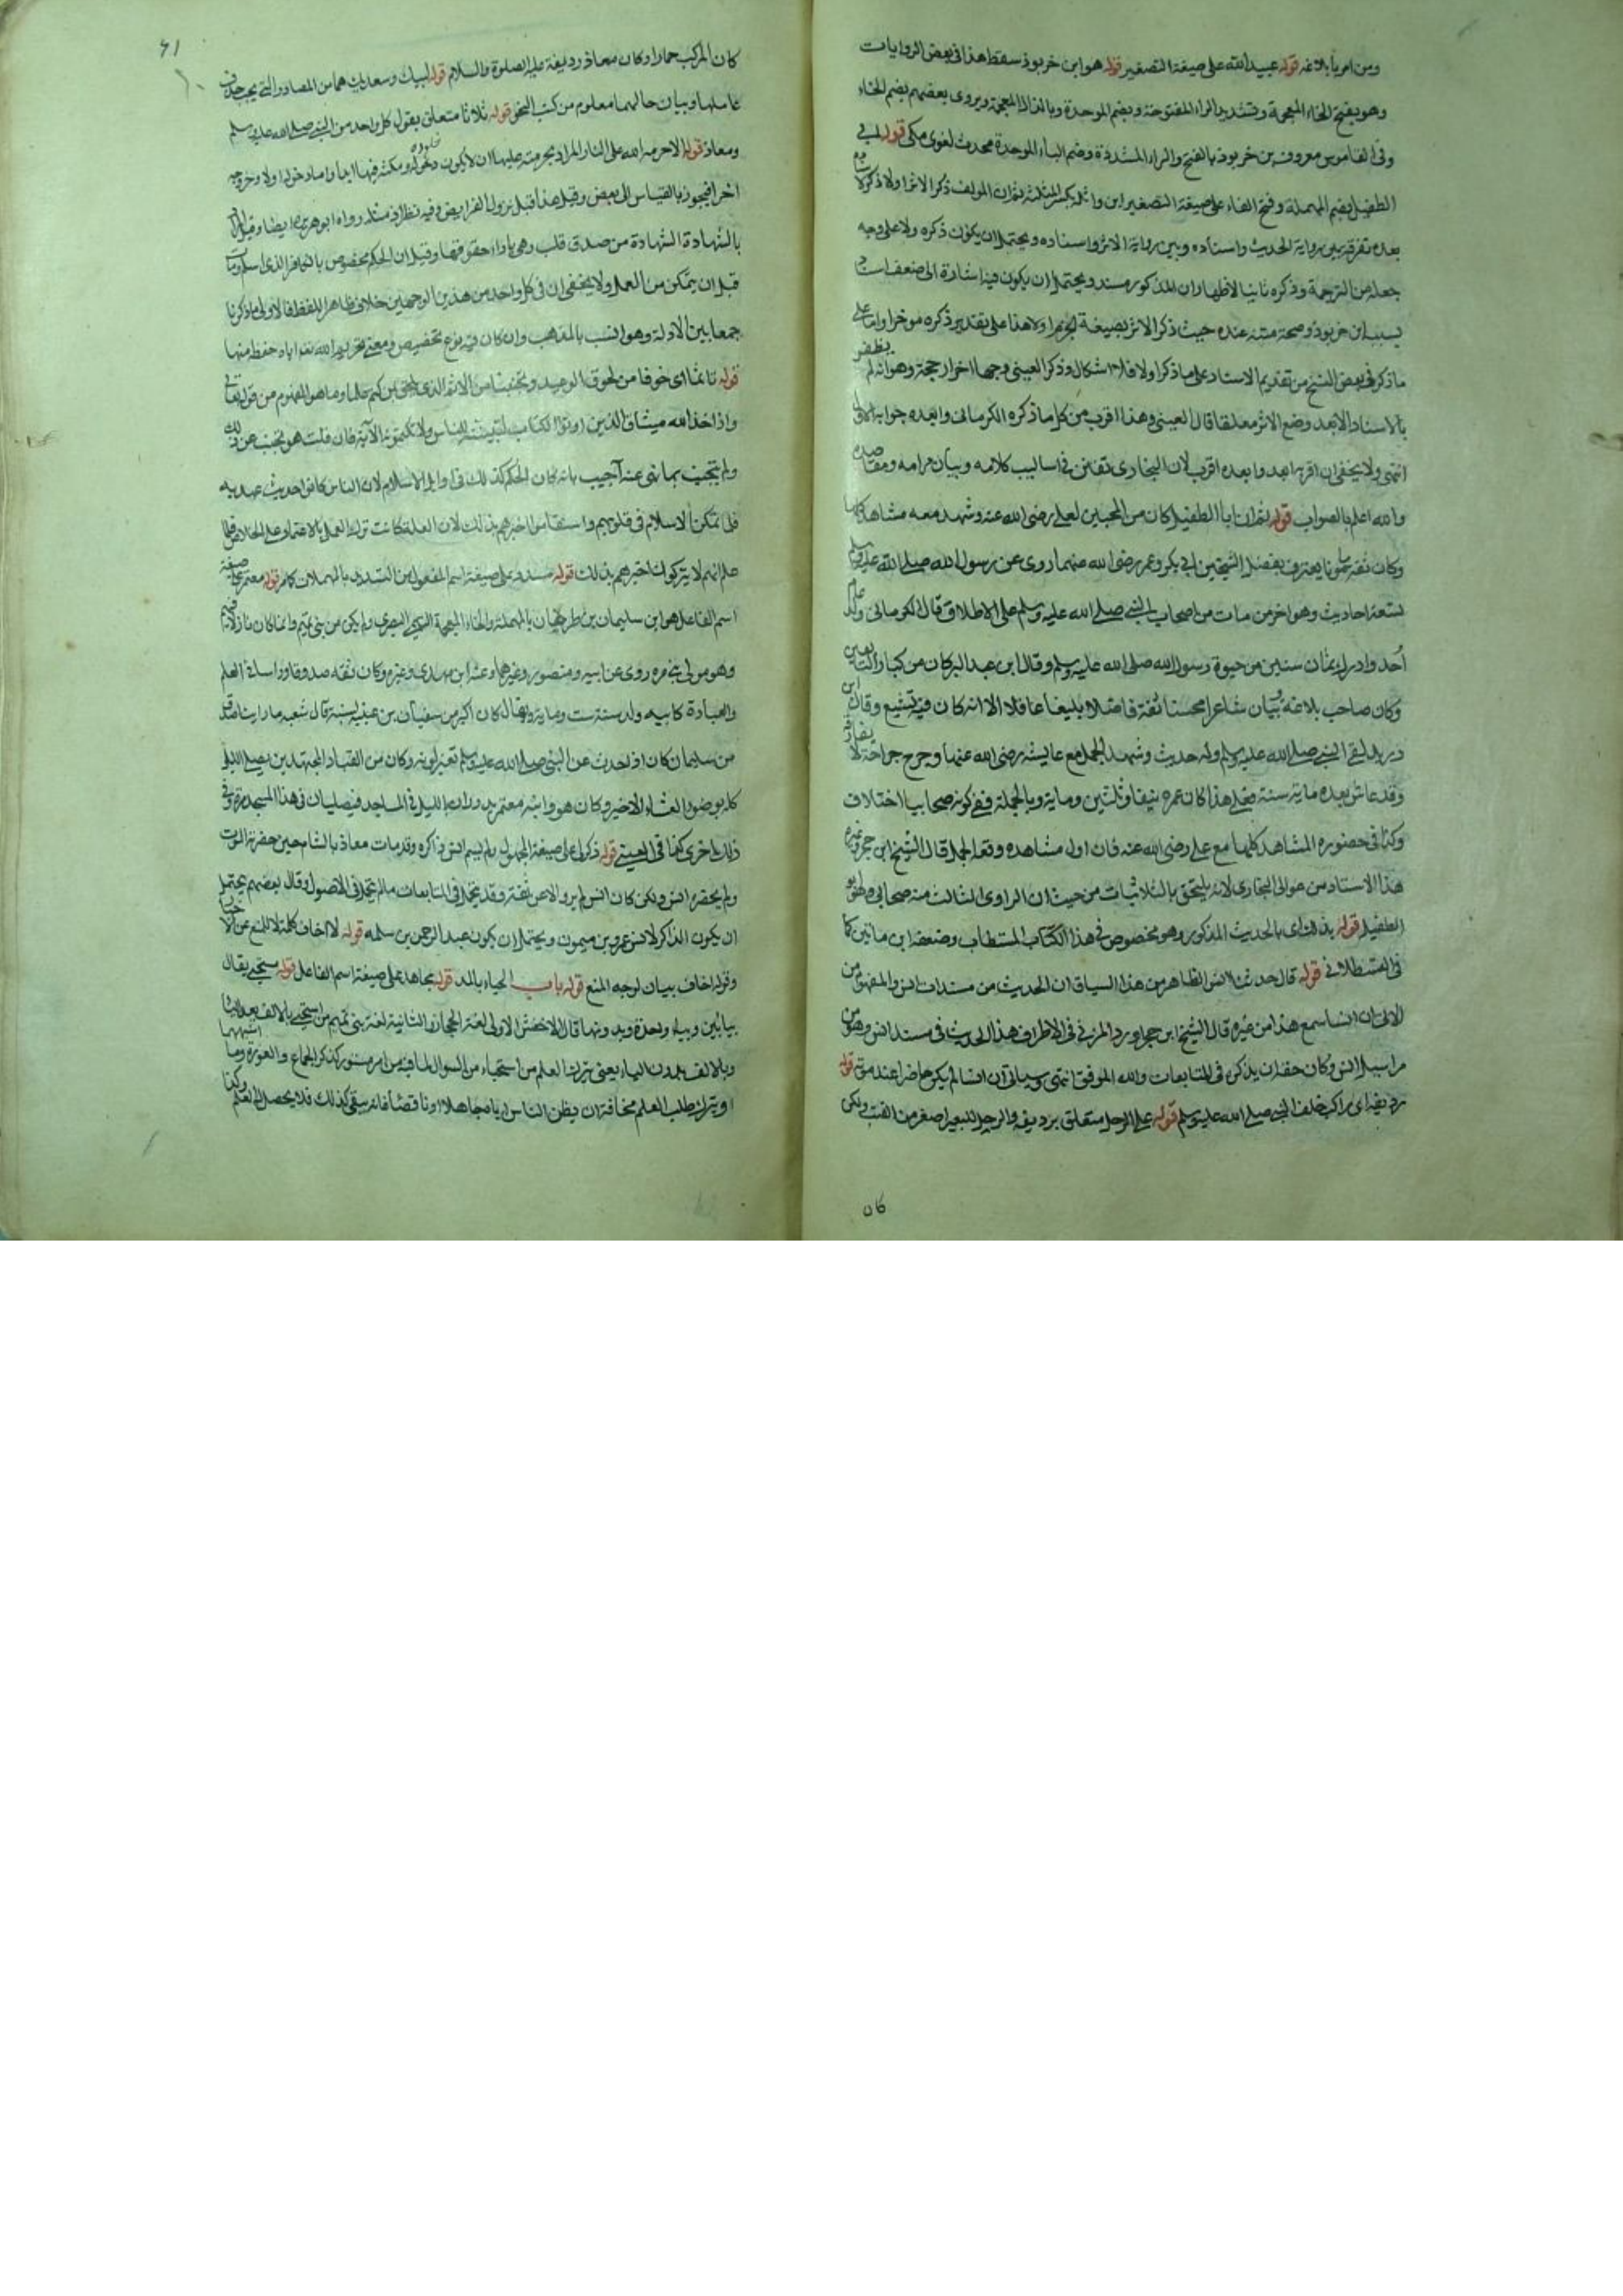 ومن امر بابلاغه قوله عبيد الله على صيغة التصغير قوله هو ابن خربوذ سقط هذا في بعض الروايات
وهو بفتح الخاء المعجمة وتشديد الراء المفتوحة وبضم الموحدة وبالذال المعجمة ويروى بعضهم بضم الخاء
وفي القاموس معروف بن خربوذ بالفتح والراء المشددة وضم الباء الموحدة محدث لغوى مكى قوله ابي
الطفيل بضم المهملة وفتح الفاء على صيغة التصغير ابن واثلة بكسر المثلثة ثم ان المولف ذكر الاثر اولا وذكر الاسناد
بعده تفرقة بين رواية الحديث واسناده وبين رواية الاثر واسناده ويحتمل ان يكون ذكره ولا على وجه
جعله من الترجمة وذكره ثانيا لاظهار ان المذكور مسند ويحتمل ان يكون فيه اشارة الى ضعف اسناده
بسبب ابن خربوذ وصحة متنه عنده حيث ذكر الاثر بصيغة الجزم اولا هذا على تقدير ذكره موخرا واما على
ما ذكر في بعض النسخ من تقديم الاسناد على ما ذكر اولا فلا اشكال وذكر العينى وجها اخر ار حجة وهو انه لم يظفر
بالاسناد الا بعد وضع الاثر معلقا قال العينى وهذا اقرب من كل ما ذكره الكرمانى وابعده جوابه الاول
انتهى ولا يخفى ان اقربها بعد وابعده اقرب لان البخارى تفنن في اساليب كلامه وبيان مرامه ومقاصده
والله اعلم بالصواب قوله ثم ان ابا الطفيل كان من المحبين لعلى رضى الله عنه وشهد معه مشاهد كلها
وكان ثقة مامونا يعترف بفضل الشيخين ابى بكر وعمر رضى الله عنهما روى عن رسول الله صلى الله عليه وسلم
تسعة احاديث وهو اخر من مات من اصحاب النبى صلى الله عليه وسلم على الاطلاق قال الكرمانى ولد عام
أحد وادرك ثمان سنين من حيوة رسول الله صلى الله عليه وسلم وقال ابن عبد البر كان من كبار التابعين
وكان صاحب بلاغة وبيان شاعرا محسنا ثقة فاضلا بليغا عاقلا الا انه كان فيه تشيع وقال ابن
دريد لقى النبى صلى الله عليه وسلم وله حديث وشهد الجمل مع عايشه رضى الله عنها وجرح جراحة لا يفارقه
وقد عاش بعده ماية سنة فعلى هذا كان عمره نيفا وثلثين وماية وبالجملة ففي كونه صحابيا اختلاف
وكذا في حضوره المشاهد كلها مع على رضى الله عنه فان اول مشاهده وقعة الجمل قال الشيخ ابن حجر وغيره
هذا الاسناد من عوالى البخارى لانه يلتحق بالثلاثيات من حيث ان الراوى الثالث منه صحابى وهو ابو
الطفيل قوله بذلك اى بالحديث المذكور وهو مخصوص في هذا الكتاب المستطاب وضعفه ابن
في القسطلانى قوله قال حدثنا انس الظاهر من هذا السياق ان الحديث من مسندات انس والمفهوم من
الاتى ان انسا سمع هذا من غيره قال الشيخ ابن حجر اورد المزى في الاطراف هذا الحديث في مسند انس وهو من
مراسيل انس وكان حقه ان يذكره في المتابعات والله الموفق انتهى وسياتى ان انسا لم يكن حاضرا عند موته قوله
رديفه اى راكب خلف النبى صلى الله عليه وسلم قوله على الرحل متعلق برديفه والرحل للبعير اصغر من القتب ولكن
كان
61
كان المركب حمارا وكان معاذ رديفه عليه الصلوة والسلام قوله لبيك وسعديك هما من المصادر التى يجب حذف
عاملها وبيان حالهما معلوم من كتب النحو قوله ثلاثا متعلق بقول كل واحد من النبى صلى الله عليه وسلم
ومعاذ قوله الا حرمه الله على النار المراد بحرمته عليها ان لا يكون دخوله ومكثه فيها ابدا واما دخوله اولا وخروجه
اخرا فيجوز بالقياس الى بعض وقيل هذا قبل نزول الفرايض وفيه نظر اذ مثله رواه ابو هريره ايضا وقيل المراد
بالشهادة الشهادة من صدق قلب وهى باداء حقوقها وقيل ان الحكم مخصوص بالكافر الذى اسلم ومات
قبل ان يتمكن من العمل ولا يخفى ان في كل واحد من هذين الوجهين خلاف ظاهر اللفظ فالاولى ما ذكرنا
جمعا بين الادلة وهو انسب بالمذهب وان كان فيه نوع تخصيص ومعنى تحريم الله تعالى اياه حفظه منها
قوله تاثما اى خوفا من لحوق الوعيد وتجنبا من الاثم الذى يلحق من كتم علما وما هو المفهوم من قوله تعالى
واذ اخذ الله ميثاق الذين اوتوا الكتاب لتبيننه للناس ولا تكتمونه الآية فان قلت هو تجنب عن ذلك
ولم يتجنب بما نهى عنه اجيب بانه كان الحكم كذلك في اوايل الاسلام لان الناس كانوا حديث عهد به
فلما تمكن الاسلام في قلوبهم واستقاموا اخبرهم بذلك لان العلة كانت ترك العمل بالاعتماد على الخلاص فلما
علم انهم لا يتركوا اخبرهم بذلك قوله مسدد على صيغة اسم المفعول من التسديد بالمهملات كامر قوله معتمر على صيغة
اسم الفاعل هو ابن سليمان بن طرخان بالمهملة والخاء المعجمة التيمى البصرى ولم يكن من بنى تيم وانما كان نازلا فيهم
وهو مولى بنى مره روى عن ابيه ومنصور وغيرهما وعنه ابن مهدى وغيره وكان ثقة صدوقا وراسا في العلم
والعبادة كابيه ولد سنة ست وماية ويقال كان اكبر من سفيان بن عيينه بسنة قال شعبه ما راينا اصدق
من سليمان كان اذ احدث عن النبى صلى الله عليه وسلم تغير لونه وكان من العباد المجتهدين يصلى الليل
كله بوضوء العشاء الاخير وكان هو وابنه معتمر يدوران بالليل في المساجد فيصليان في هذا المسجد مرة وفي
ذلك اخرى كذا في العينى قوله ذكر لى على صيغة المجهول ولم يسم انس ذاكره وقد مات معاذ بالشام حين حضرته الموت
ولم يحضره انس ولكن كان انس لم يرو الا عن ثقة وقد يتحمل في المتابعات ما لم يتحمل في الاصول وقال بعضهم يحتمل
ان يكون الذاكر لانس عمرو بن ميمون ويحتمل ان يكون عبد الرحمن بن سلمه قوله لا اخاف كلمة لا للمنع عن الاخبار
وقوله اخاف بيان لوجه المنع قوله باب الحياء بالمد قوله مجاهد على صيغة اسم الفاعل قوله مستحيى يقال
بيائين وبياء واحدة وبدونها قال الاخفش الاولى لغة الحجاز والثانية لغة بنى تميم من استحيى بالالف بعد الياء
وبالالف بدون الياء يعنى حرمان العلم من استحياء من السوال لما فيه من امر مستور كذكر الجماع والعورة وما اشبهها
او يترك طلب العلم مخافة ان يظن الناس اياه جاهلا او ناقصا فانه يبقى كذلك فلا يحصل له العلم وكذا